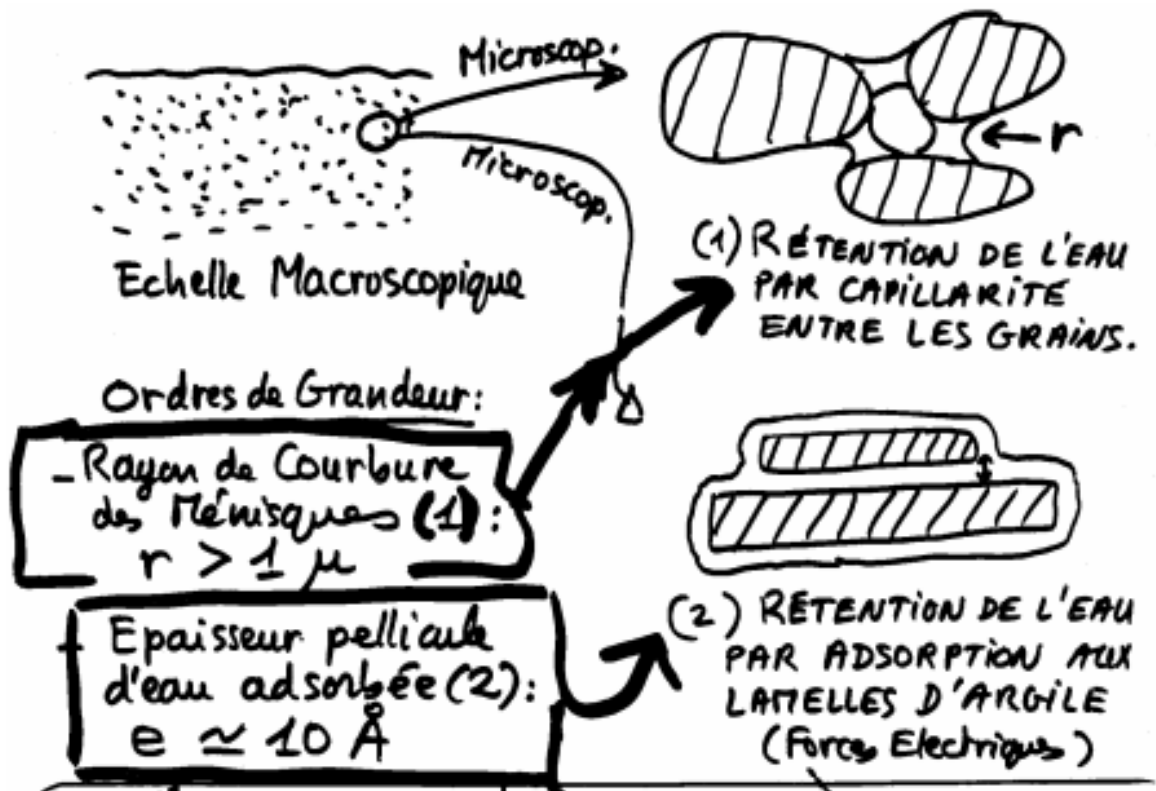 Microscop.
Microscop.
← r
Echelle Macroscopique
(1) RÉTENTION DE L'EAU
PAR CAPILLARITÉ
ENTRE LES GRAINS.
Ordres de Grandeur:
- Rayon de Courbure
des Ménisques (1):
r > 1 μ
- Epaisseur pellicule
d'eau adsorbée (2):
e ≃ 10 Å
(2) RÉTENTION DE L'EAU
PAR ADSORPTION AUX
LAMELLES D'ARGILE
(Forces Electriques)